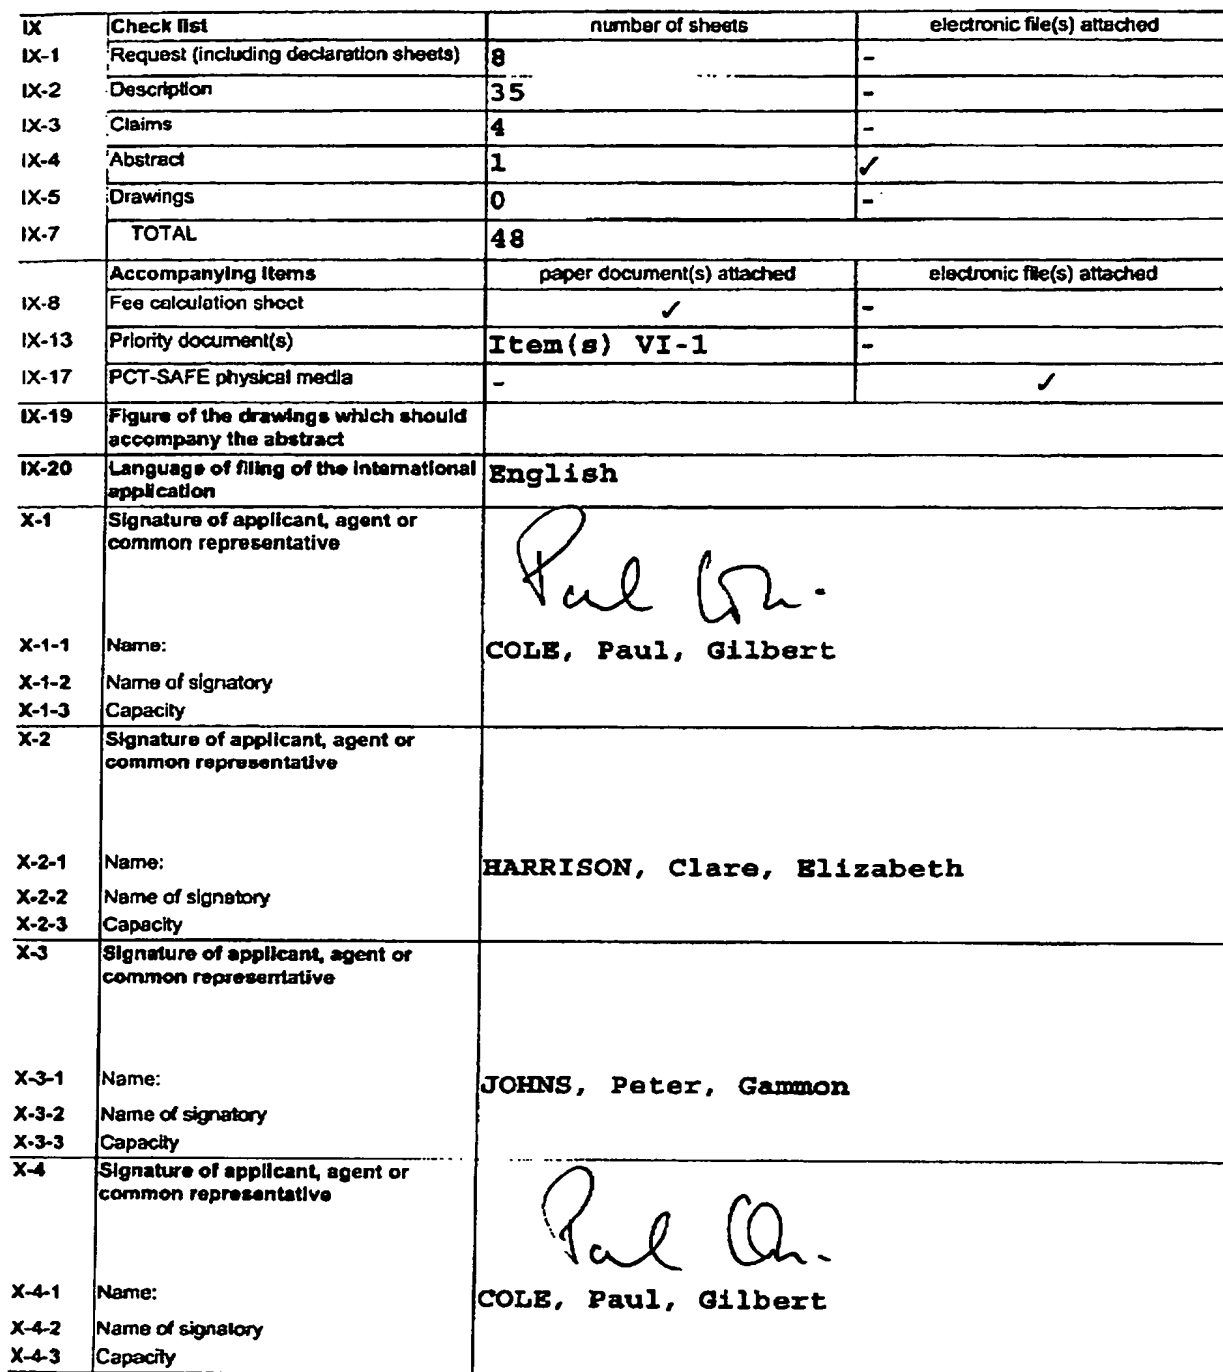 IX Check list number of sheets electronic file(s) attached
IX-1 Request (including declaration sheets) 8 -
IX-2 Description 35 -
IX-3 Claims 4 -
IX-4 Abstract 1 ✓
IX-5 Drawings 0 -
IX-7 TOTAL 48
Accompanying Items paper document(s) attached electronic file(s) attached
IX-8 Fee calculation sheet ✓ -
IX-13 Priority document(s) Item(s) VI-1 -
IX-17 PCT-SAFE physical media - ✓
IX-19 Figure of the drawings which should
accompany the abstract
IX-20 Language of filing of the international English
application
X-1 Signature of applicant, agent or
common representative
Paul
X-1-1 Name: COLE, Paul, Gilbert
X-1-2 Name of signatory
X-1-3 Capacity
X-2 Signature of applicant, agent or
common representative
X-2-1 Name: HARRISON, Clare, Elizabeth
X-2-2 Name of signatory
X-2-3 Capacity
X-3 Signature of applicant, agent or
common representative
X-3-1 Name: JOHNS, Peter, Gammon
X-3-2 Name of signatory
X-3-3 Capacity
X-4 Signature of applicant, agent or
common representative
Paul
X-4-1 Name: COLE, Paul, Gilbert
X-4-2 Name of signatory
X-4-3 Capacity